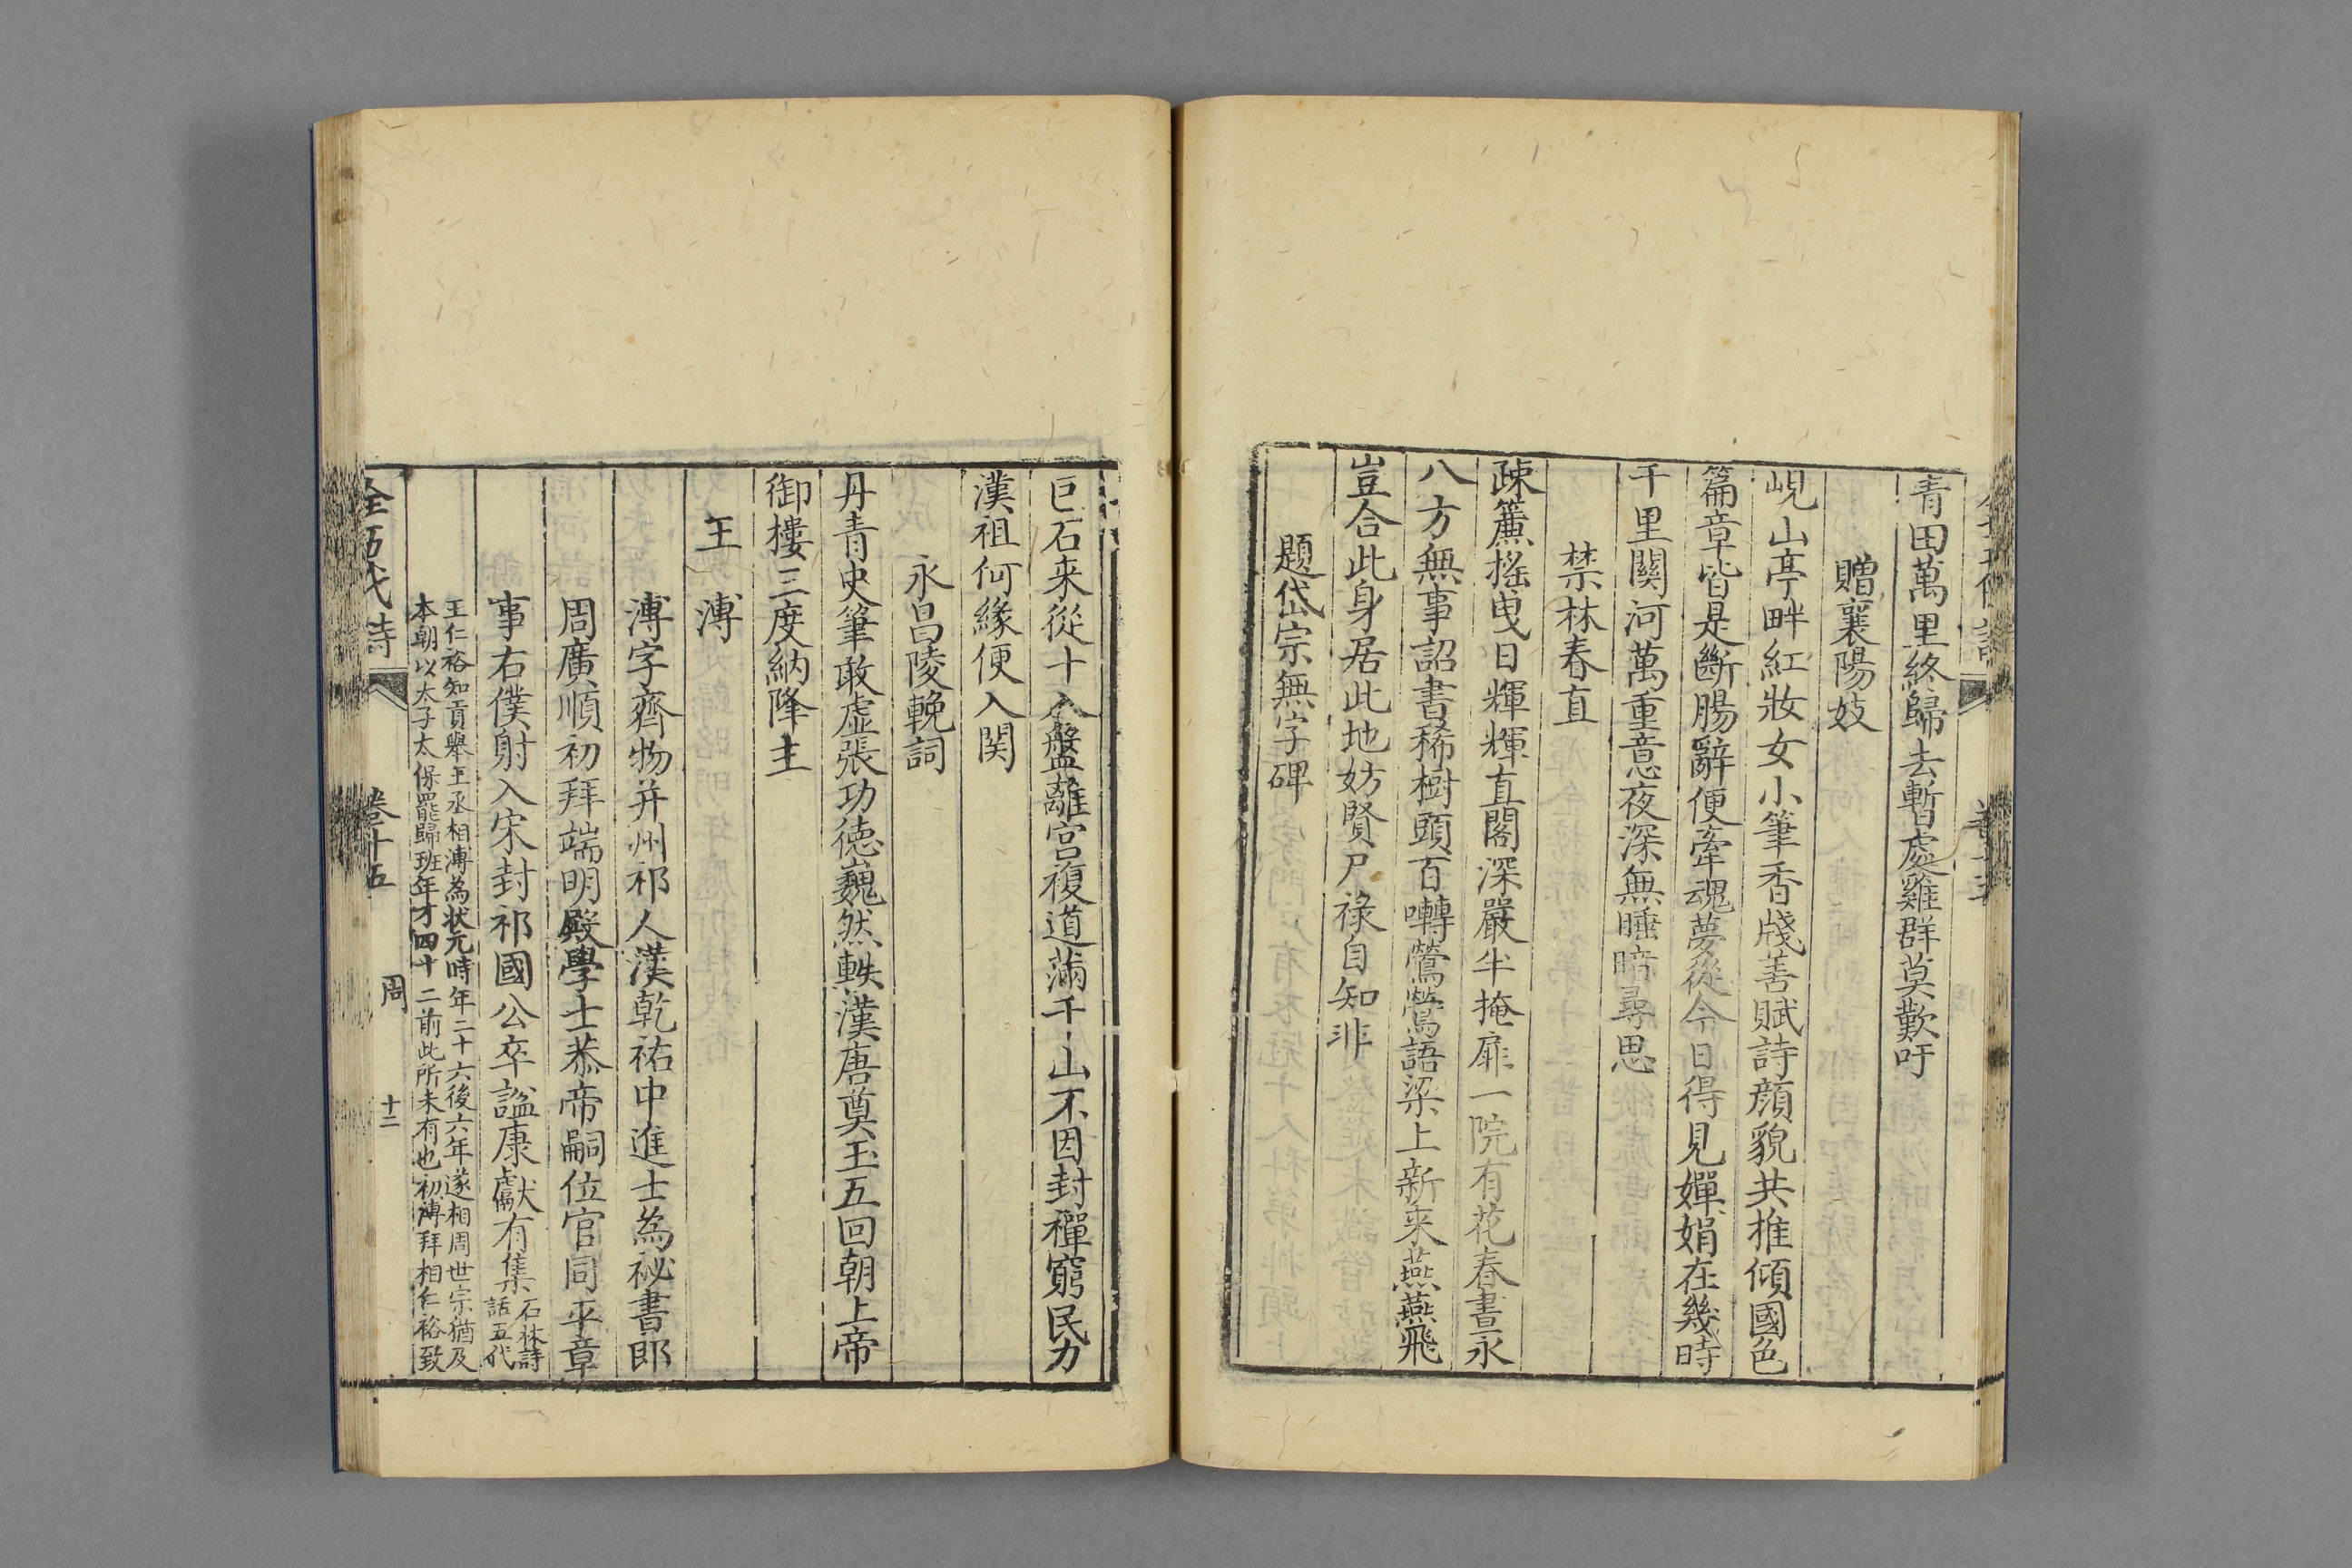 青田萬里終歸去暫處雞群莫歎吁
贈襄陽妓
峴山亭畔紅妝女小筆香牋善賦詩顔貌共推傾國色
篇章皆是斷腸辭便牽魂夢從今日得見嬋娟在幾時
千里關河萬重意夜深無睡暗尋思
禁林春直
疎簾揺曳日輝輝直閣深嚴半掩扉一院有花春晝永
八方無事詔書稀樹頭百囀鶯鶯語梁上新来燕燕飛
豈合此身居此地妨賢尸祿自知非
題岱宗無字碑
巨石来從十八盤離宮複道滿千山不因封禪窮民力
漢祖何緣便入関
永昌陵輓詞
丹青史筆敢虚張功德巍然軼漢唐奠玉五回朝上帝
御樓三度納降主
王溥
溥字齊物并州祁人漢乾祐中進士為祕書郎
周廣順初拜端明殿學士恭帝嗣位官同平章
事右僕射入宋封祁國公卒諡康獻有集石林詩
話五代
王仁裕知貢舉王丞相溥為状元時年二十六後六年遂相周世宗猶及
本朝以太子太保罷歸班年才四十二前此所未有也初溥拜相仁裕致
全五代詩 卷十五 周 十二